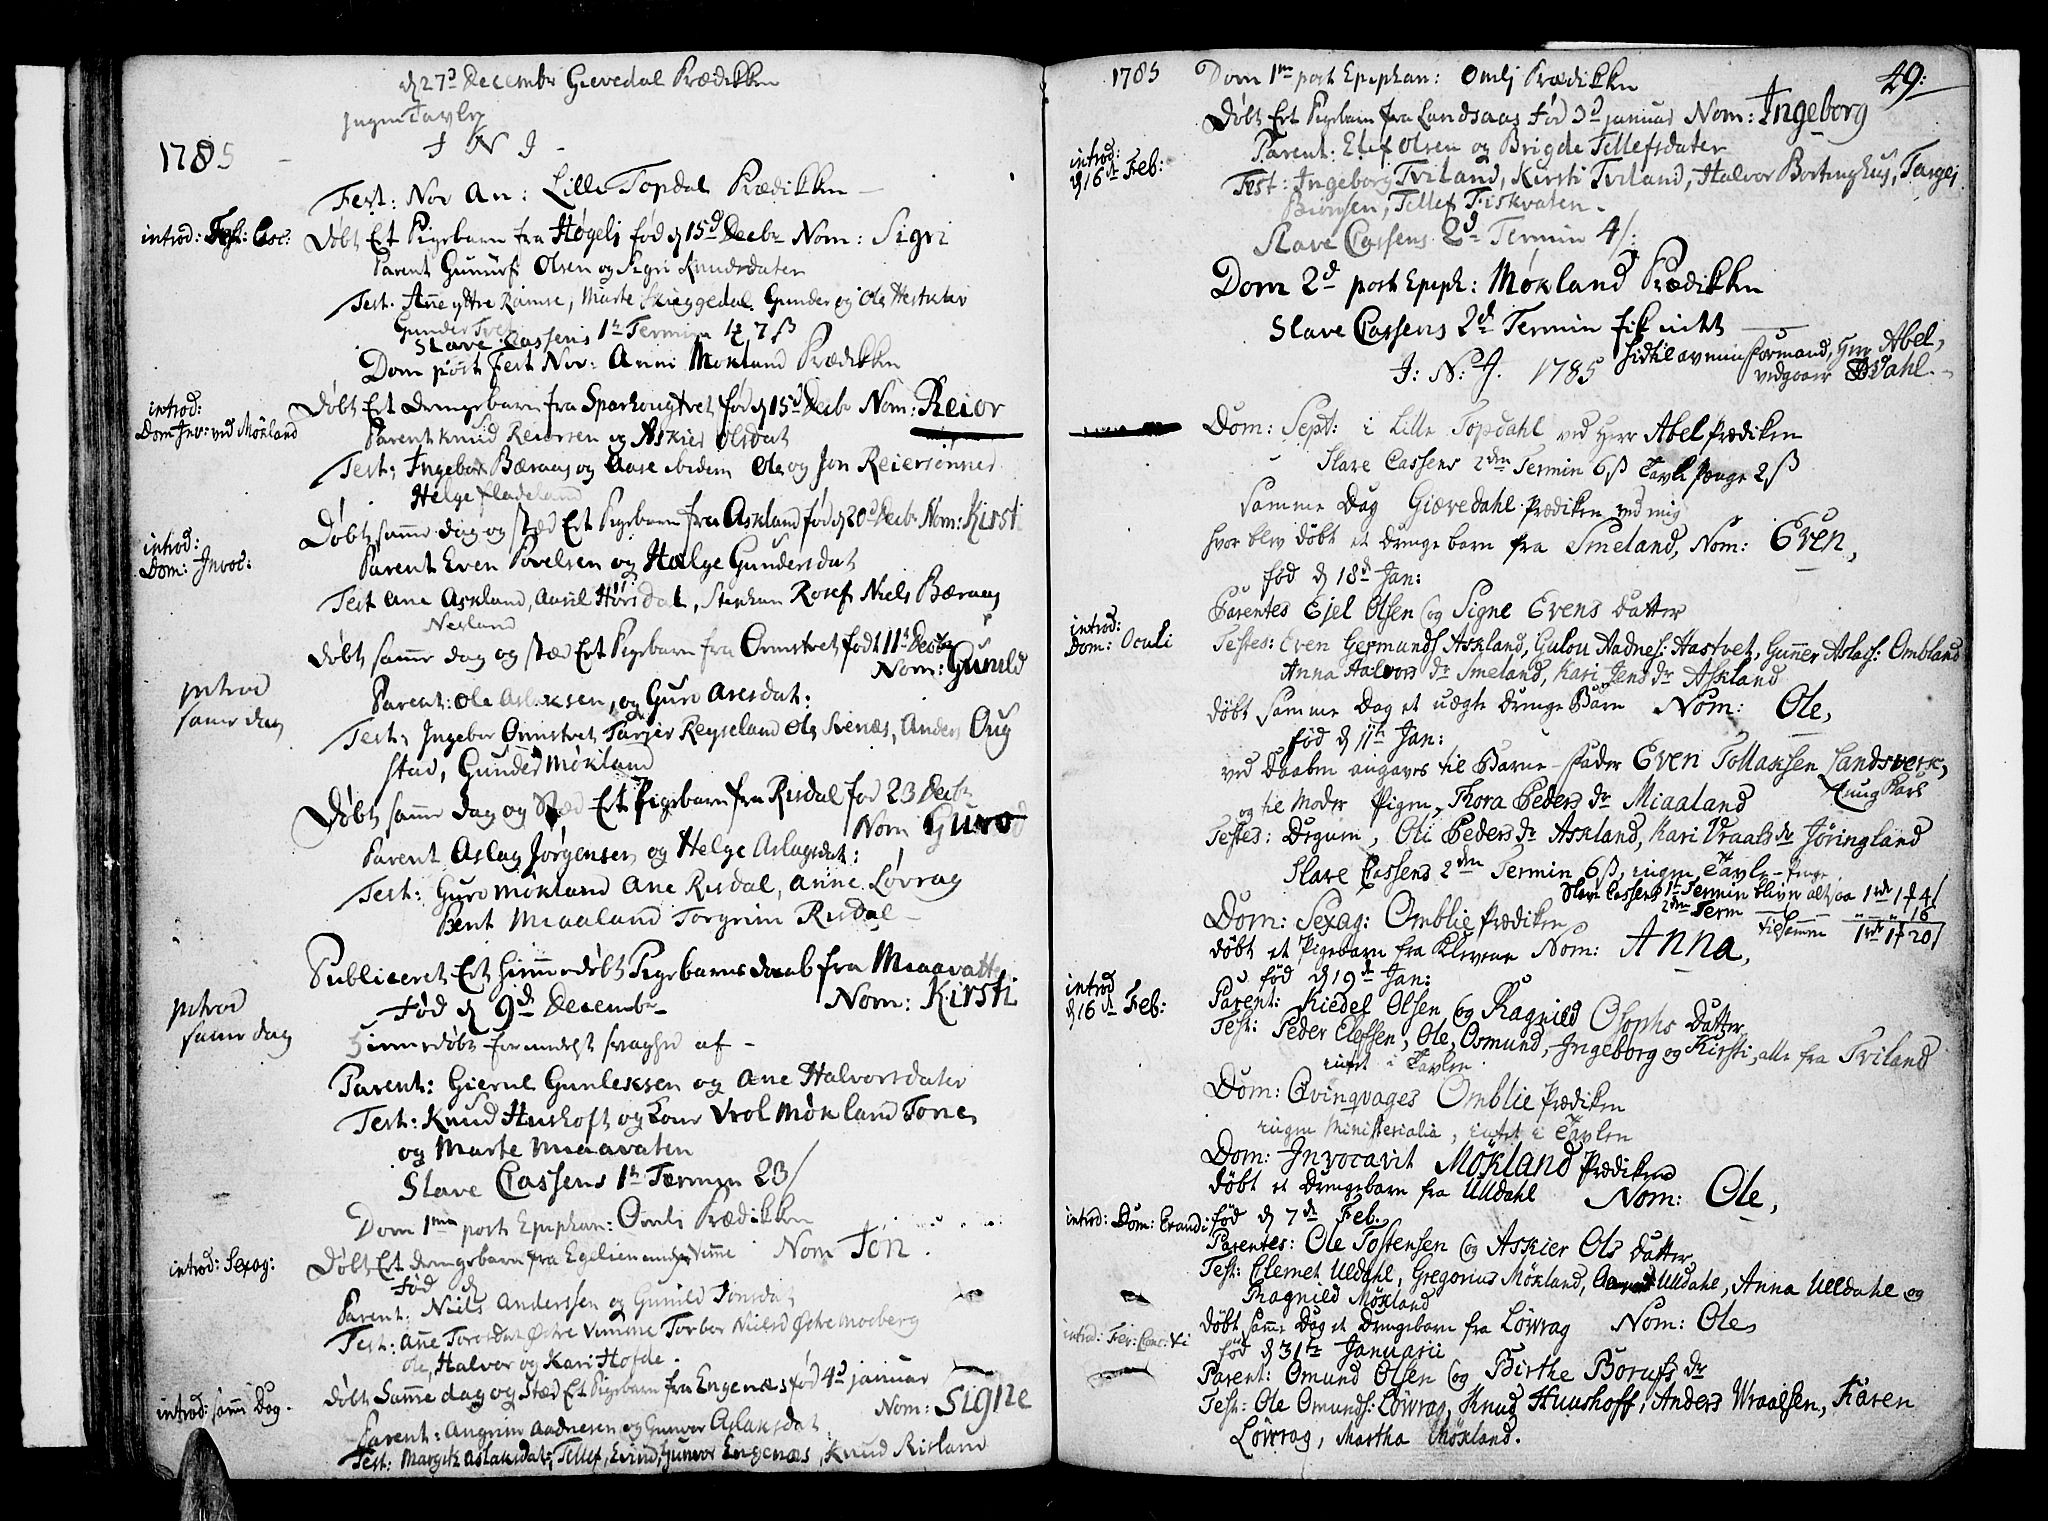 d 27d Decembr Gievedal Prædikken
Ingen Tavle
1785
I N I
Fest: Nov An: Lille Topdal Prædikken
introd: Fest: Casc:
Døbt Et Pigebarn fra Høgeli fød d 15d Decbr Nom: Sigri
Parent Olsen og Sigri Knudsdater
Test: Anne Yttre Ramse, Marte Skieggedal Gunder og Ole Hestklev
Gunder Tvet
Slave Cassens 1te Termin 7 ß
Dom post Fest Nov: Anni Mokland Prædikken
introd:
Dom Inv: ved Mokland
Døbt Et drengebarn fra fød d 15d Decbr Nom: Reior
Parent Knud Reiersen og Askier Olsdat
Test: Ingebor Bæraas og Aase ibidem Ole og Jon Reiersønner
Helge Fladeland
introd:
Dom: Invoc:
Døbt samme dag og stæd Et Pigebarn fra Askland fød d 20d Decbr Nom: Kirsti
Parent Even Povelsen og Helge Gundersdat
Test Ane Askland, Aasil Hørsdal, Stephan Rosef Niels Bæraas
Nesland
Døbt samme dag og stæd Et Pigebarn fra Ormstvet født 11t Decbr
Nom: Gunild
introd
same dag
Parent: Ole Aslaksen, og Guro Aresdat:
Test: Ingebor Ormstvet Tarjer Reyseland Ole Svenæs, Anders Oug
stad, Gunder Mokland
Døbt samme dag og Stæd Et Pigebarn fra Risdal fød 23 Decbr
Nom Guro
Parent Aslag Jørgensen og Helge Aslagsdat:
Test: Guro Mokland Ane Risdal, Anne Løvrag
Bent Miaaland Torgrim Risdal
Publiceret Et hiemmedøbt Pigebarns daab fra Miaavatten
introd
same dag
Fød d 9d Decembr Nom: Kirsti
Hiemmedøbt formedelst svaghed af
Parent: Gierul Gunleksen og Ane Halvorsdater
Test: Knud Hushoft og Kone Vrol Mokland Tone
og Marte Miaavaten
Slave Cassens 1te Termin 23/
Dom 1ma post Epiphan: Omli Prædikken
introd: Sexag:
Døbt Et drengebarn fra Nom Jon
Fød d
Parent: Niels Anderssen og Gunild Jonsdat
Test: Anne Østre Vimme Torbor Nielsd Østre Moeberg
Ole, Halvor og Kari Hofde.
introd: samme Dag.
Døbt Samme dag og Stæd Et Pigebarn fra Engenæs fød 4d januar
Nom: Signe
Parent: Angrim Aadnesen og Gunvor Aslaksdat
Test: Margit Aslaksdat:, Tellef, Eivind, Gunvor Engenæs, Knud Risland
1785
Dom 1ma post Epiphan: Omli Prædikken
49:
Døbt Et Pigebarn fra Landsaas Fød 3d januar Nom: Ingeborg
introd:
d 16de Feb:
Parent: Elef Olsen og Brigde Tellefsdater
Test: Ingeborg Tviland, Kirsti Tviland, Halvor Bortinghus, Targej
Biønsen, Tellef Fiskvaten.
Slave Cassens 2d Termin 4/:
Dom 2d post Epiph: Mokland Prædikken
Slave Cassens 2d Termin fik intet
I: N: J. 1785
hidtil av min Formand, Herr Abel,
vedgaaer Dahl.
Dom: Sept: i Lille Topdahl ved Herr Abel Prædiken
Slave Cassens 2den Termin 6 ß Tavle Penge 2 ß
samme Dag Giævedahl Prædiken ved mig
hvor blev døbt et drenge barn fra Smeland, Nom: Even,
fød d 18d Jan:
introd:
Dom: Oculi
Parentes Ejel Olsen og Signe Evens datter
Testes: Even Germunds Askland, Gulou Aadnes: Hastvet, Gunner Aslach: Ombland
Anna Halvors dr Smeland, Kari Jens dr Askland
døbt samme Dag et uægte drenge Barn Nom: Ole,
fød d 11te Jan:
ved Daaben angaves til Barne-Fader Even Tollaksen Landsverk,
Ung Karl
og til Moder Pigen, Thora Peders dr Miaaland
Testes: Degnen, Oli Peders dr Askland, Kari Vraals dr Jøringland
Slave Cassens 2den Termin 6 ß, ingen Tavle-Penge
Slave Cassens 1te Termin bliver alt
2den Term
tilsamme
Dom: Sexag: Omblie Prædiken
døbt et Pigebarn fra Klivene Nom: Anna,
fød d 19d Jan:
introd
d 16de Feb:
Parent: Kiedel Olsen og Ragnild Osophs datter
Test: Peder Elefsen, Ole, Osmund, Ingeborg og Kirsti, alle fra Tviland
intet i Tavlen
Dom: Qvinqvages Omblie Prædiken
ingen Ministerialia, intet i Tavlen
Dom: Invocavit Mökland Prædiken
døbt et Drengebarn fra Ulldahl Nom: Ole,
introd: Dom: Exaudi:
fød d 7de Feb.
Parentes: Ole Tostensen og Askier Ols datter
Test: Clemet Uldahl, Gregorius Mökland, Uldahl, Anna Ulldahl og
Ragnild Mökland
døbt samme Dag et Drengebarn fra Löwrag Nom: Ole,
fød d 31te Januarii
Parent: Omund Olsen og Birthe Borufs dr
Test: Ole Omunds: Löwrag, Knud Huushoff, Anders Wraalsen, Karen
Löwrag, Martha Mökland.